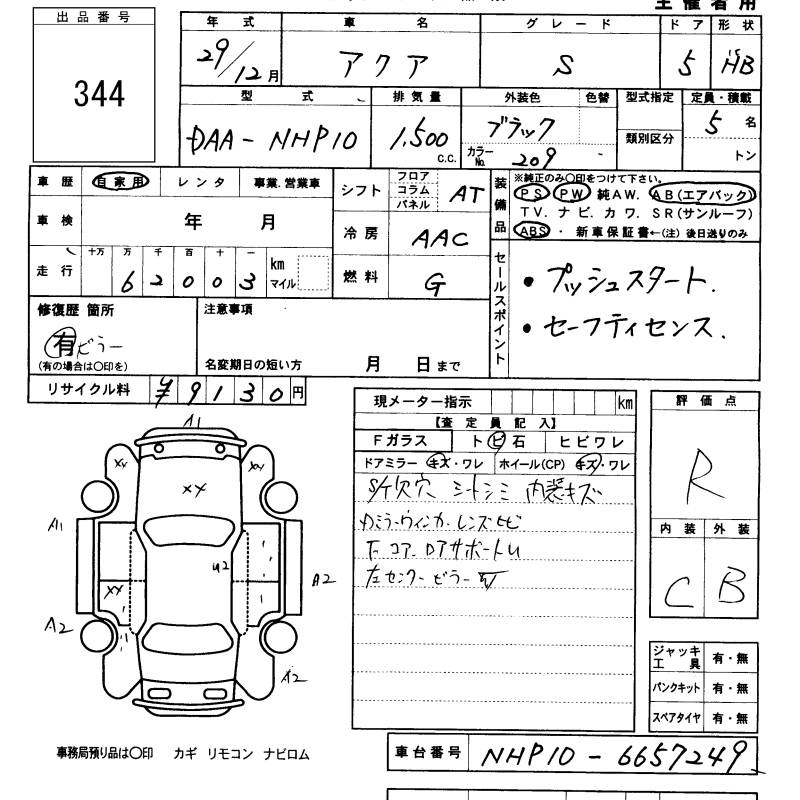 主催者用
出品番号
344
年式 車名 グレード ドア 形状
29/12月 アクア S 5 HB
型式 排気量 外装色 色替 型式指定 定員・積載
DAA-NHP10 1,500 c.c. ブラック カラーNo. 209 類別区分 5 名 トン
車歴 自家用 レンタ 事業.営業車
車検 年 月
走行 十万 万 千 百 十 一 km マイル
62003
シフト フロア コラム パネル AT
冷房 AAC
燃料 G
装備品
※純正のみ○印をつけて下さい。
PS PW 純AW. AB(エアバック)
TV. ナビ. カワ. SR(サンルーフ)
ABS ・ 新車保証書←(注) 後日送りのみ
セールスポイント
・プッシュスタート.
・セーフティセンス.
修復歴 箇所 注意事項
有 ピラー
(有の場合は○印を) 名変期日の短い方 月 日まで
リサイクル料 ¥9130円
現メーター指示 km
【査定員記入】
Fガラス トビ石 ヒビワレ
ドアミラー キズ・ワレ ホイール(CP) キズ・ワレ
S/ケ欠穴 シートシミ 内装キズ
ミラーウィンカーレンズヒビ
F コア
左センターピラー
評価点
R
内装 外装
C B
ジャッキ工具 有・無
パンクキット 有・無
スペアタイヤ 有・無
A1
XX XX
XX
A1
U2
A2
XX
A2
A2
事務局預り品は○印 カギ リモコン ナビロム
車台番号 NHP10-6657249